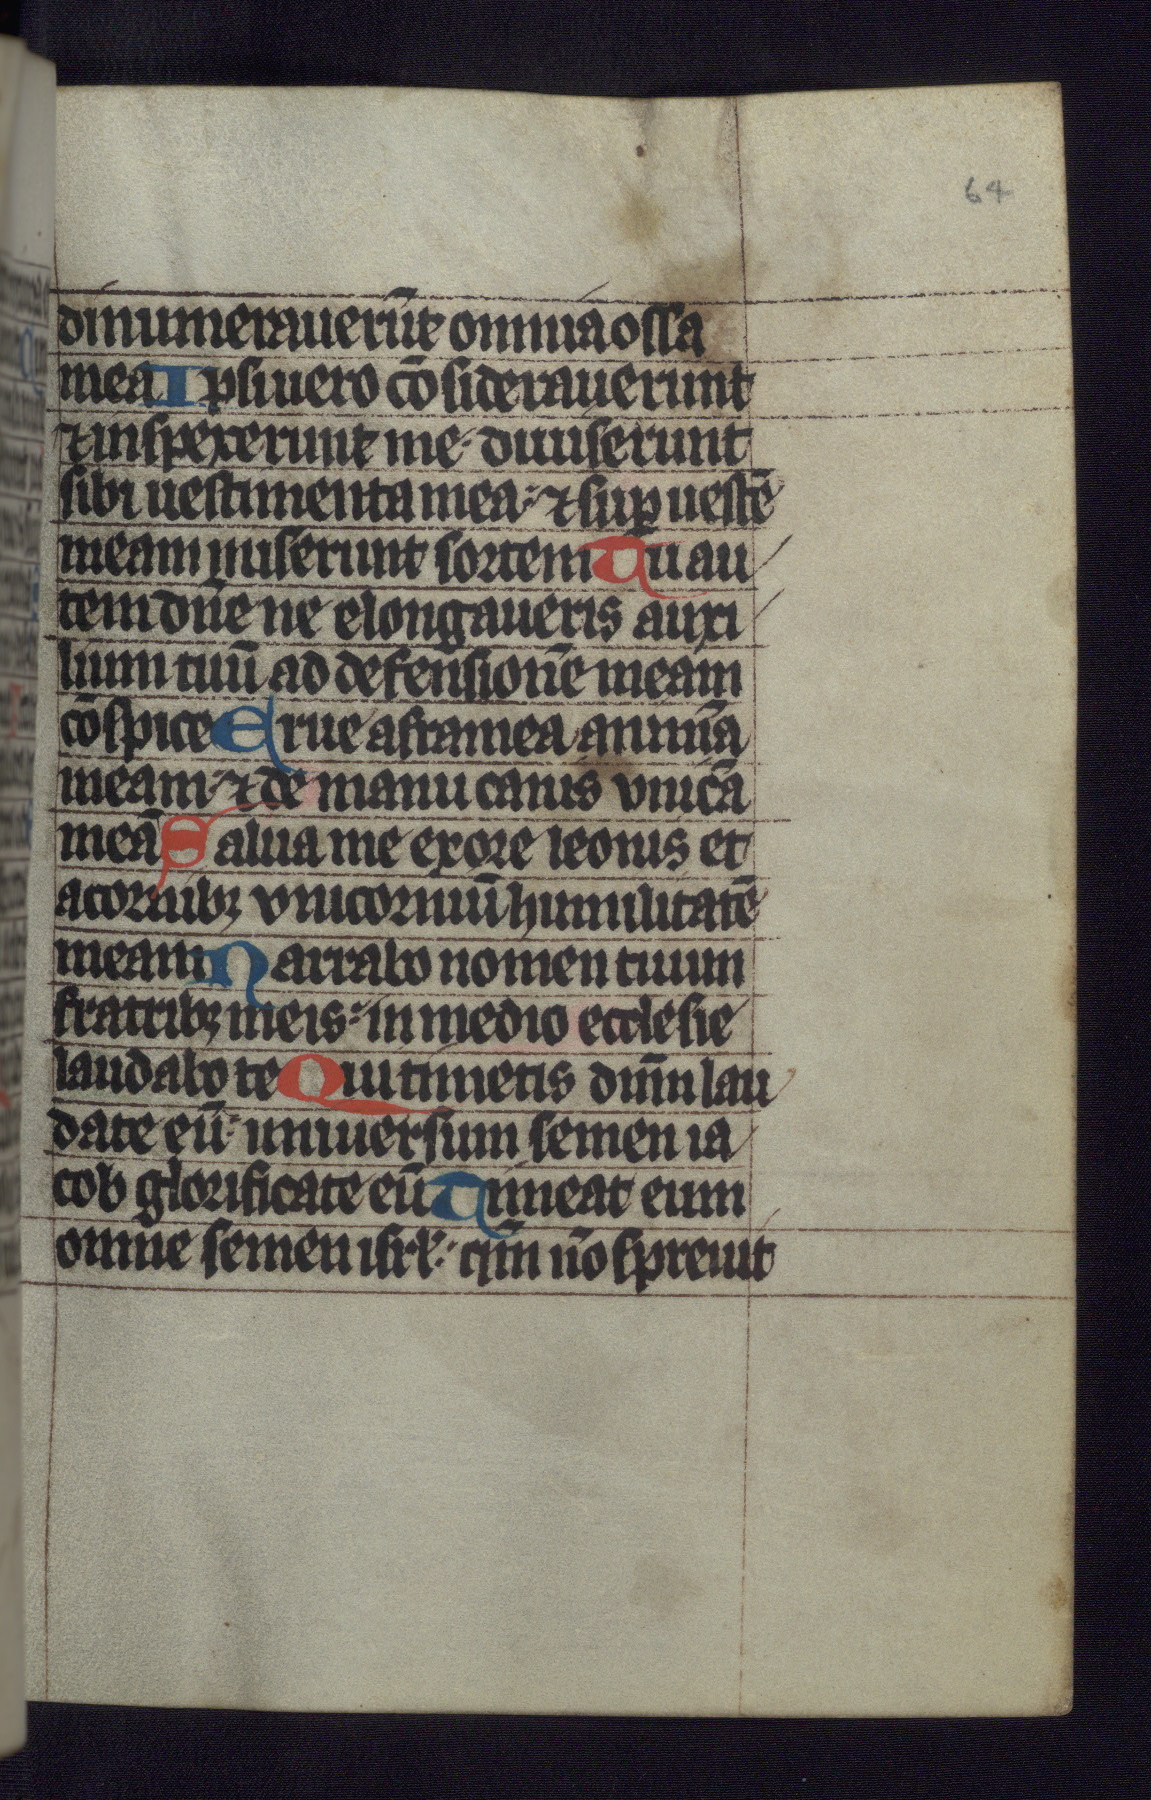 64
dinumerauerūt omnia ossa
mea Ipsi uero cōsiderauerunt
⁊ inspexerunt me· diuiserunt
sibi uestimenta mea· ⁊ sup uestē
meam miserunt sortem Tu au
tem dn̄e ne elongaueris auxi
lium tuū ad defensionē meam
cōspice Erue a framea animā
meam· ⁊ de manu canis vnicā
meā Salua me ex ore leonis et
a cornibꝫ vnicorniū humilitatē
meam Narrabo nomen tuum
fratribꝫ meis· in medio ecclesie
laudabo te Qui timetis dn̄m lau
date eū· uniuersum semen ia
cob glorificate eū Timeat eum
omne semen isrl̄· qm̄ nō spreuit